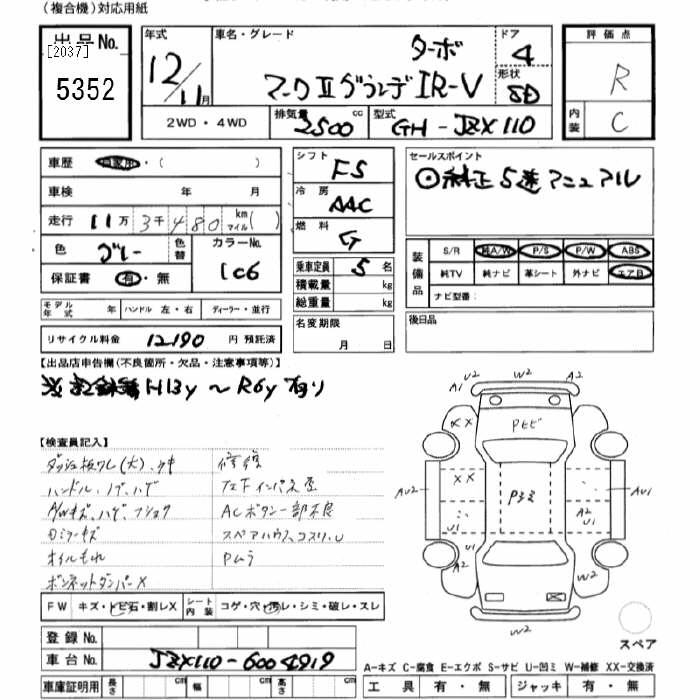 (複合機)対応用紙
出品No.
[2037]
5352
年式
12/11月
車名・グレード
ターボ
マークⅡグランデ IR-V
ドア
4
形状
SD
評価点
R
内装
C
2WD・4WD
排気量
2500 cc
型式
GH-JZX110
車歴
自家用・( )
車検 年 月
走行 11万3千480 km マイル( )
色
グレー
色替
カラーNo.
1C6
保証書 有・無
モデル年式 年 ハンドル 左・右 ディーラー・並行
リサイクル料金 12190 円 預託済
シフト
F5
冷房
AAC
燃料
G
乗車定員 5 名
積載量 kg
総重量 kg
名変期限
月 日
セールスポイント
◎純正5速マニュアル
装備品
S/R 純A/W P/S P/W ABS
純TV 純ナビ 革シート 外ナビ エアB
ナビ型番:
後日品
【出品店申告欄(不良箇所・欠品・注意事項等)】
記録簿 H13y～R6y有り
【検査員記入】
ダッシュ板ワレ(大)、ウキ
ハンドル、ノブ、ハゲ
A/Wキズ、ハゲ、フショク
ロミラーキズ
オイルもれ
ボンネットダンパーX
修復
左下インパネ歪
ACボタン一部不良
スペアハウスコスリ、U
Pムラ
FW キズ・トビ石・割レX シート内装 コゲ・穴・汚レ・シミ・破レ・スレ
登録No.
車台No. JZX110-6004919
車庫証明用 長さ cm 幅 cm 高さ cm
U2 W2 A2
A1
XX PトビE
XX
Pシミ
AU2 AU1
U1 A2 U1
U1
A2 W2
W2
スペア
A-キズ C-腐食 E-エクボ S-サビ U-凹ミ W-補修 XX-交換済
工具 有・無 ジャッキ 有・無